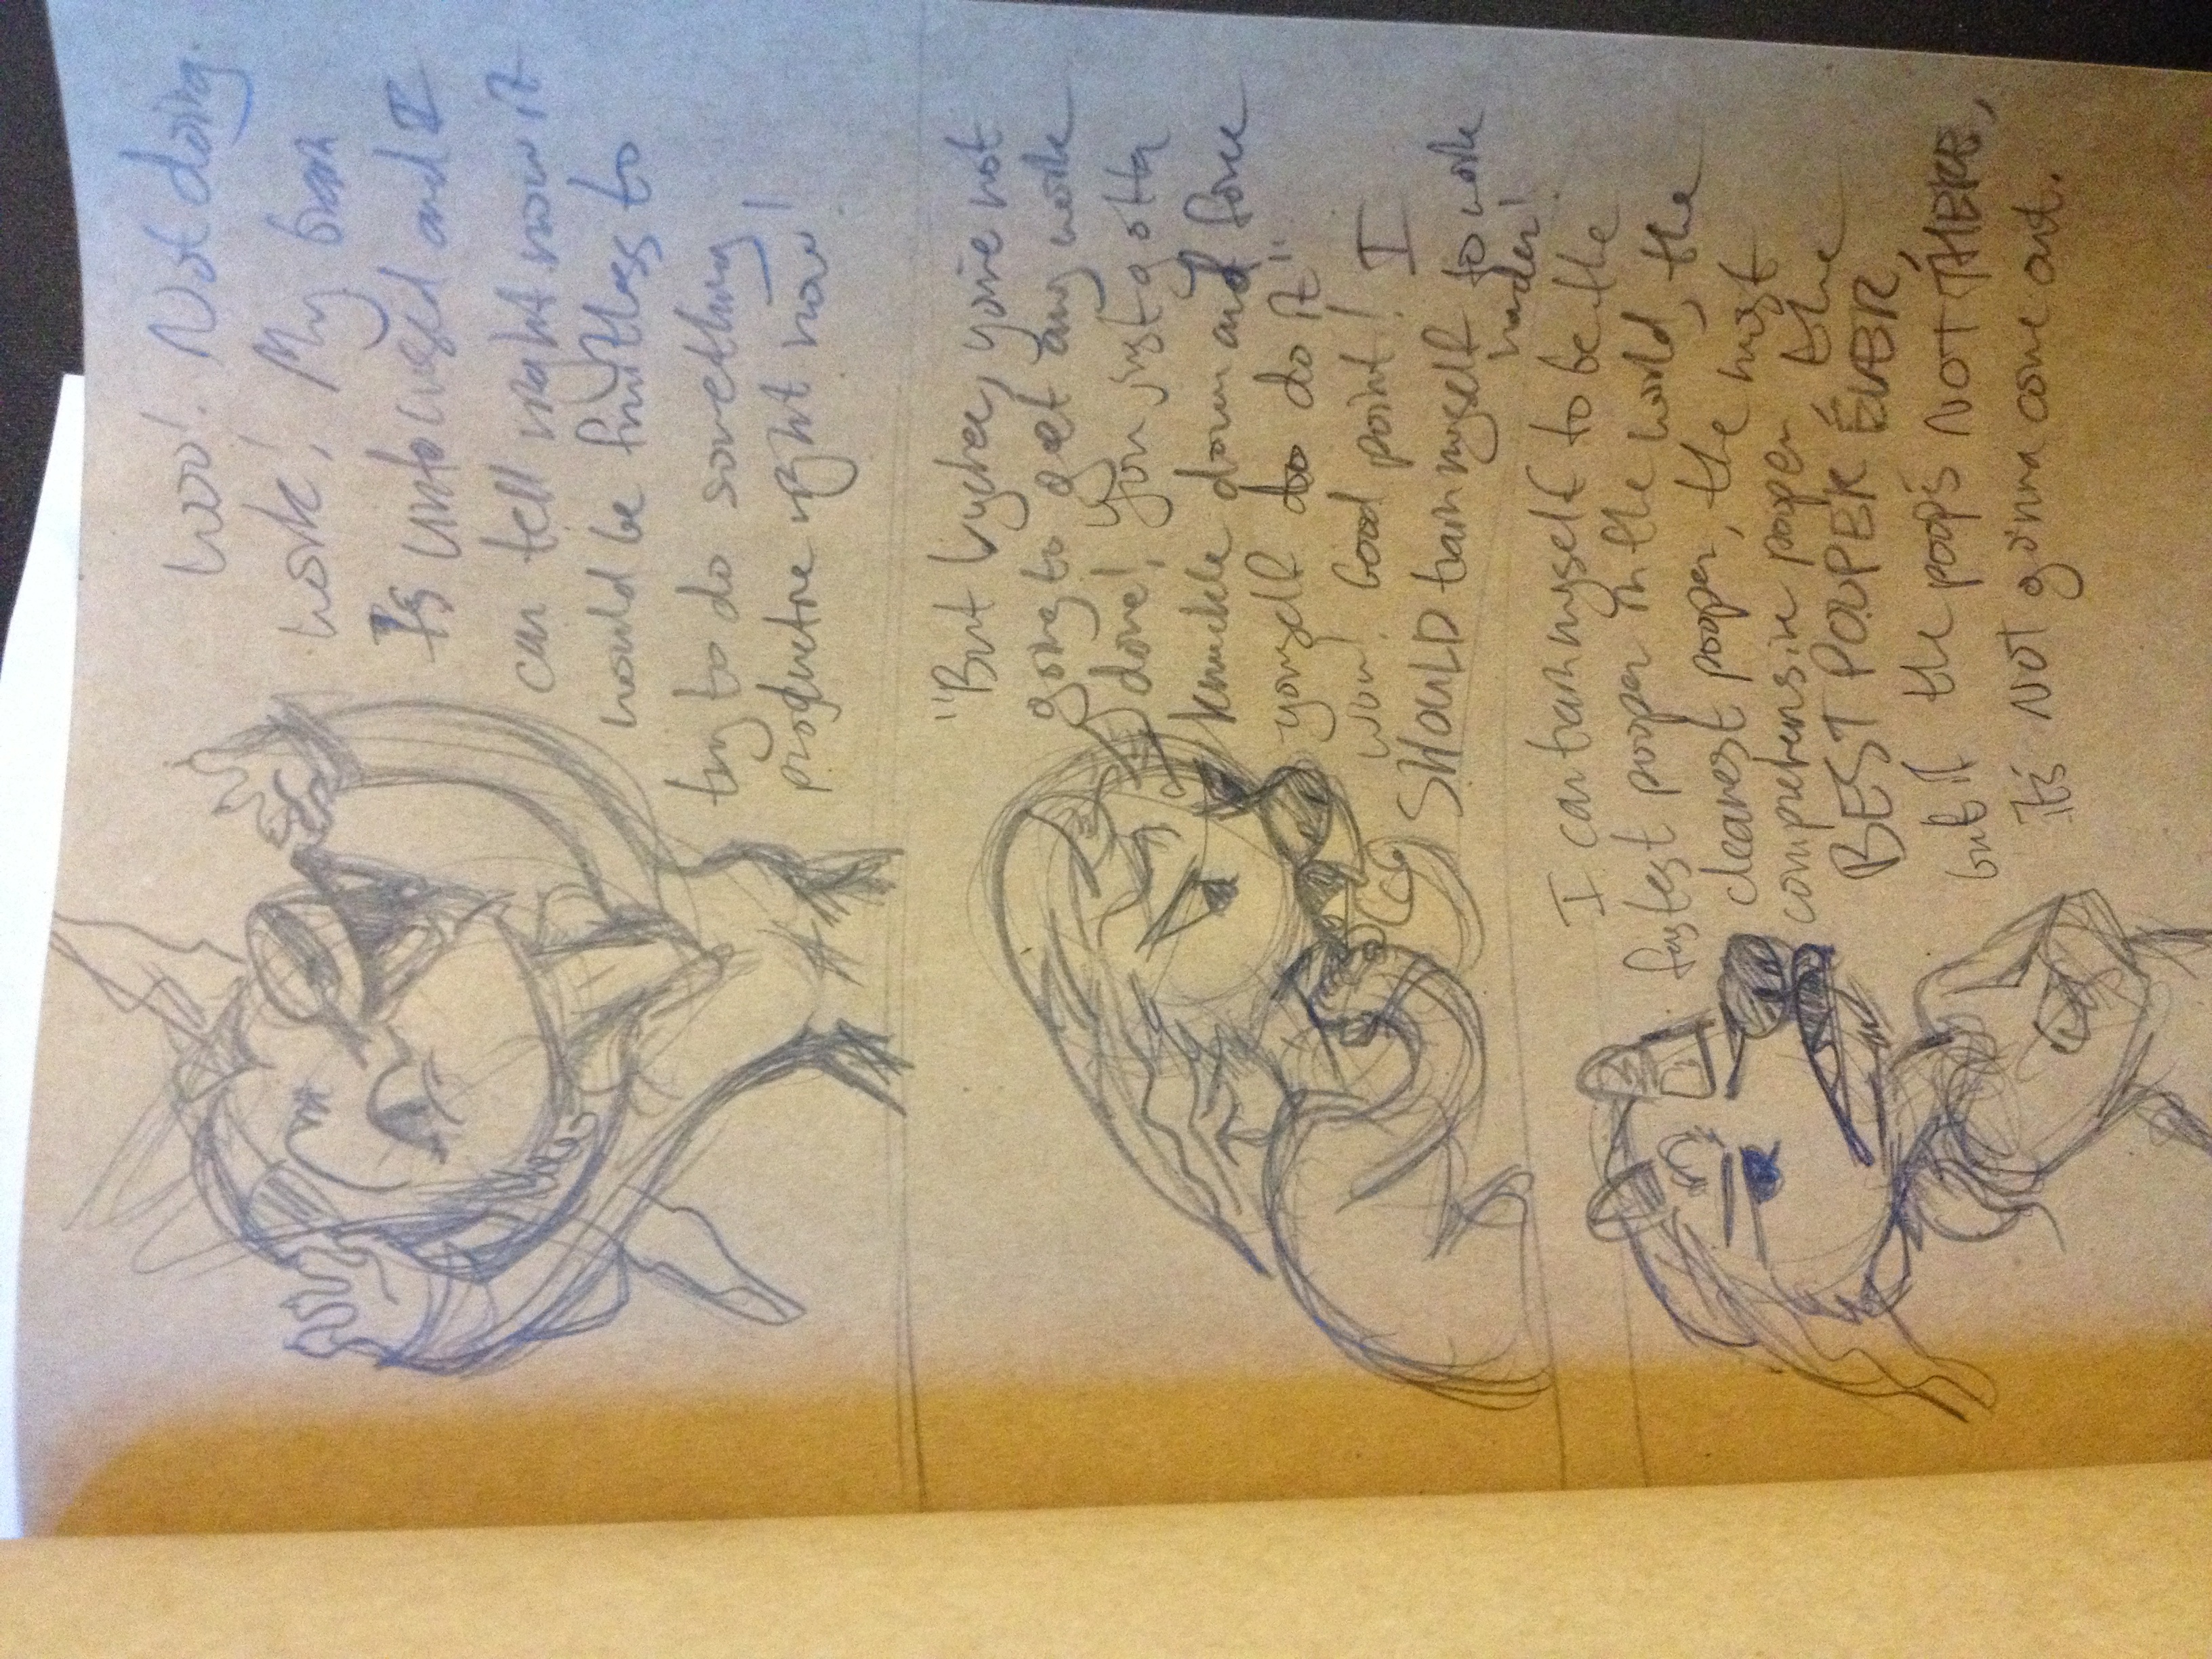 woo! Not doing
work! My brain
Is unfocused and I
can tell right now it
would be fruitless to
try to do something
productive right now!
"But Lychee, you're not
going to get any work
done! You just gotta
knuckle down and force
yourself to do it"
wow! Good point! I
SHOULD train myself to work
harder!
I can train myself to be the
fastest pooper in the world, the
cleanest pooper, the most
comprehensive pooper, the
BEST POOPER EVER,
but if the poop's NOT THERE,
it's NOT gonna come out.